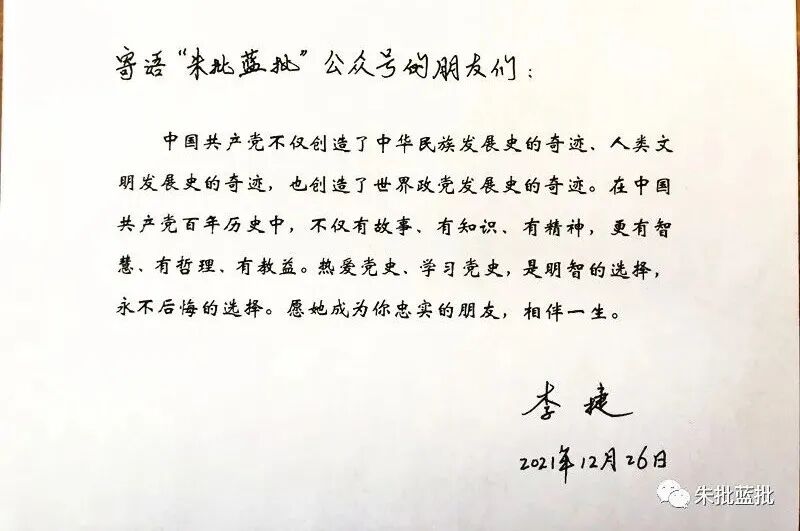 寄语“朱批蓝批”公众号的朋友们：
中国共产党不仅创造了中华民族发展史的奇迹、人类文
明发展史的奇迹，也创造了世界政党发展史的奇迹。在中国
共产党百年历史中，不仅有故事、有知识、有精神，更有智
慧、有哲理、有教益。热爱党史、学习党史，是明智的选择，
永不后悔的选择。愿她成为你忠实的朋友，相伴一生。
李捷
2021年12月26日
朱批蓝批